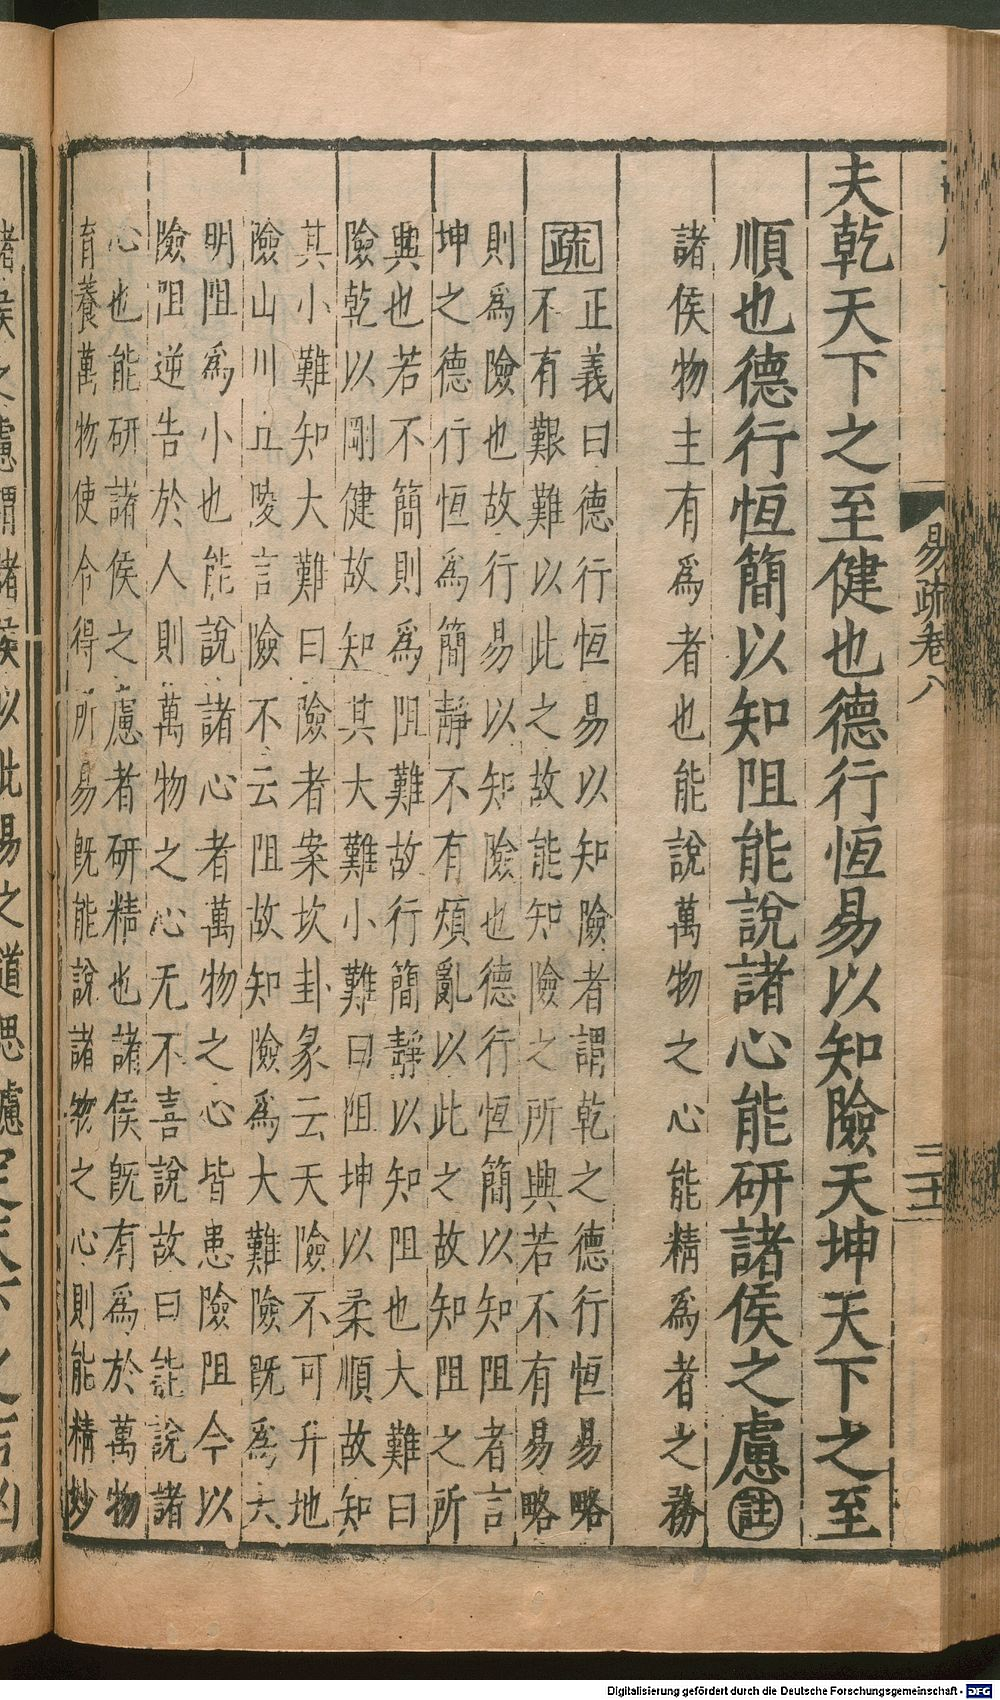 易疏卷八
夫乾天下之至健也德行恒易以知險夫坤天下之至
順也德行恒簡以知阻能說諸心能研諸侯之慮註
諸侯物主有爲者也能說萬物之心能精爲者之務
疏正義曰德行恒易以知險者謂乾之德行恒易略
不有艱難以此之故能知險之所興若不有易略
則爲險也故行易以知險也德行恒簡以知阻者言
坤之德行恒爲簡靜不有煩亂以此之故知阻之所
興也若不簡則爲阻難故行簡靜以知阻也大難曰
險乾以剛健故知其大難小難曰阻坤以柔順故知
其小難知大難曰險者案坎卦彖云天險不可升地
險山川丘陵言險不云阻故知險爲大難險既爲大
明阻爲小也能說諸心者萬物之心皆患險阻今以
險阻逆告於人則萬物之心无不喜說故曰能說諸
心也能研諸侯之慮者研精也諸侯既有爲於萬物
育養萬物使令得所易既能說諸物之心則能精妙
諸侯之慮謂諸侯以此易之道思慮
Digitalisierung gefördert durch die Deutsche Forschungsgemeinschaft - DFG